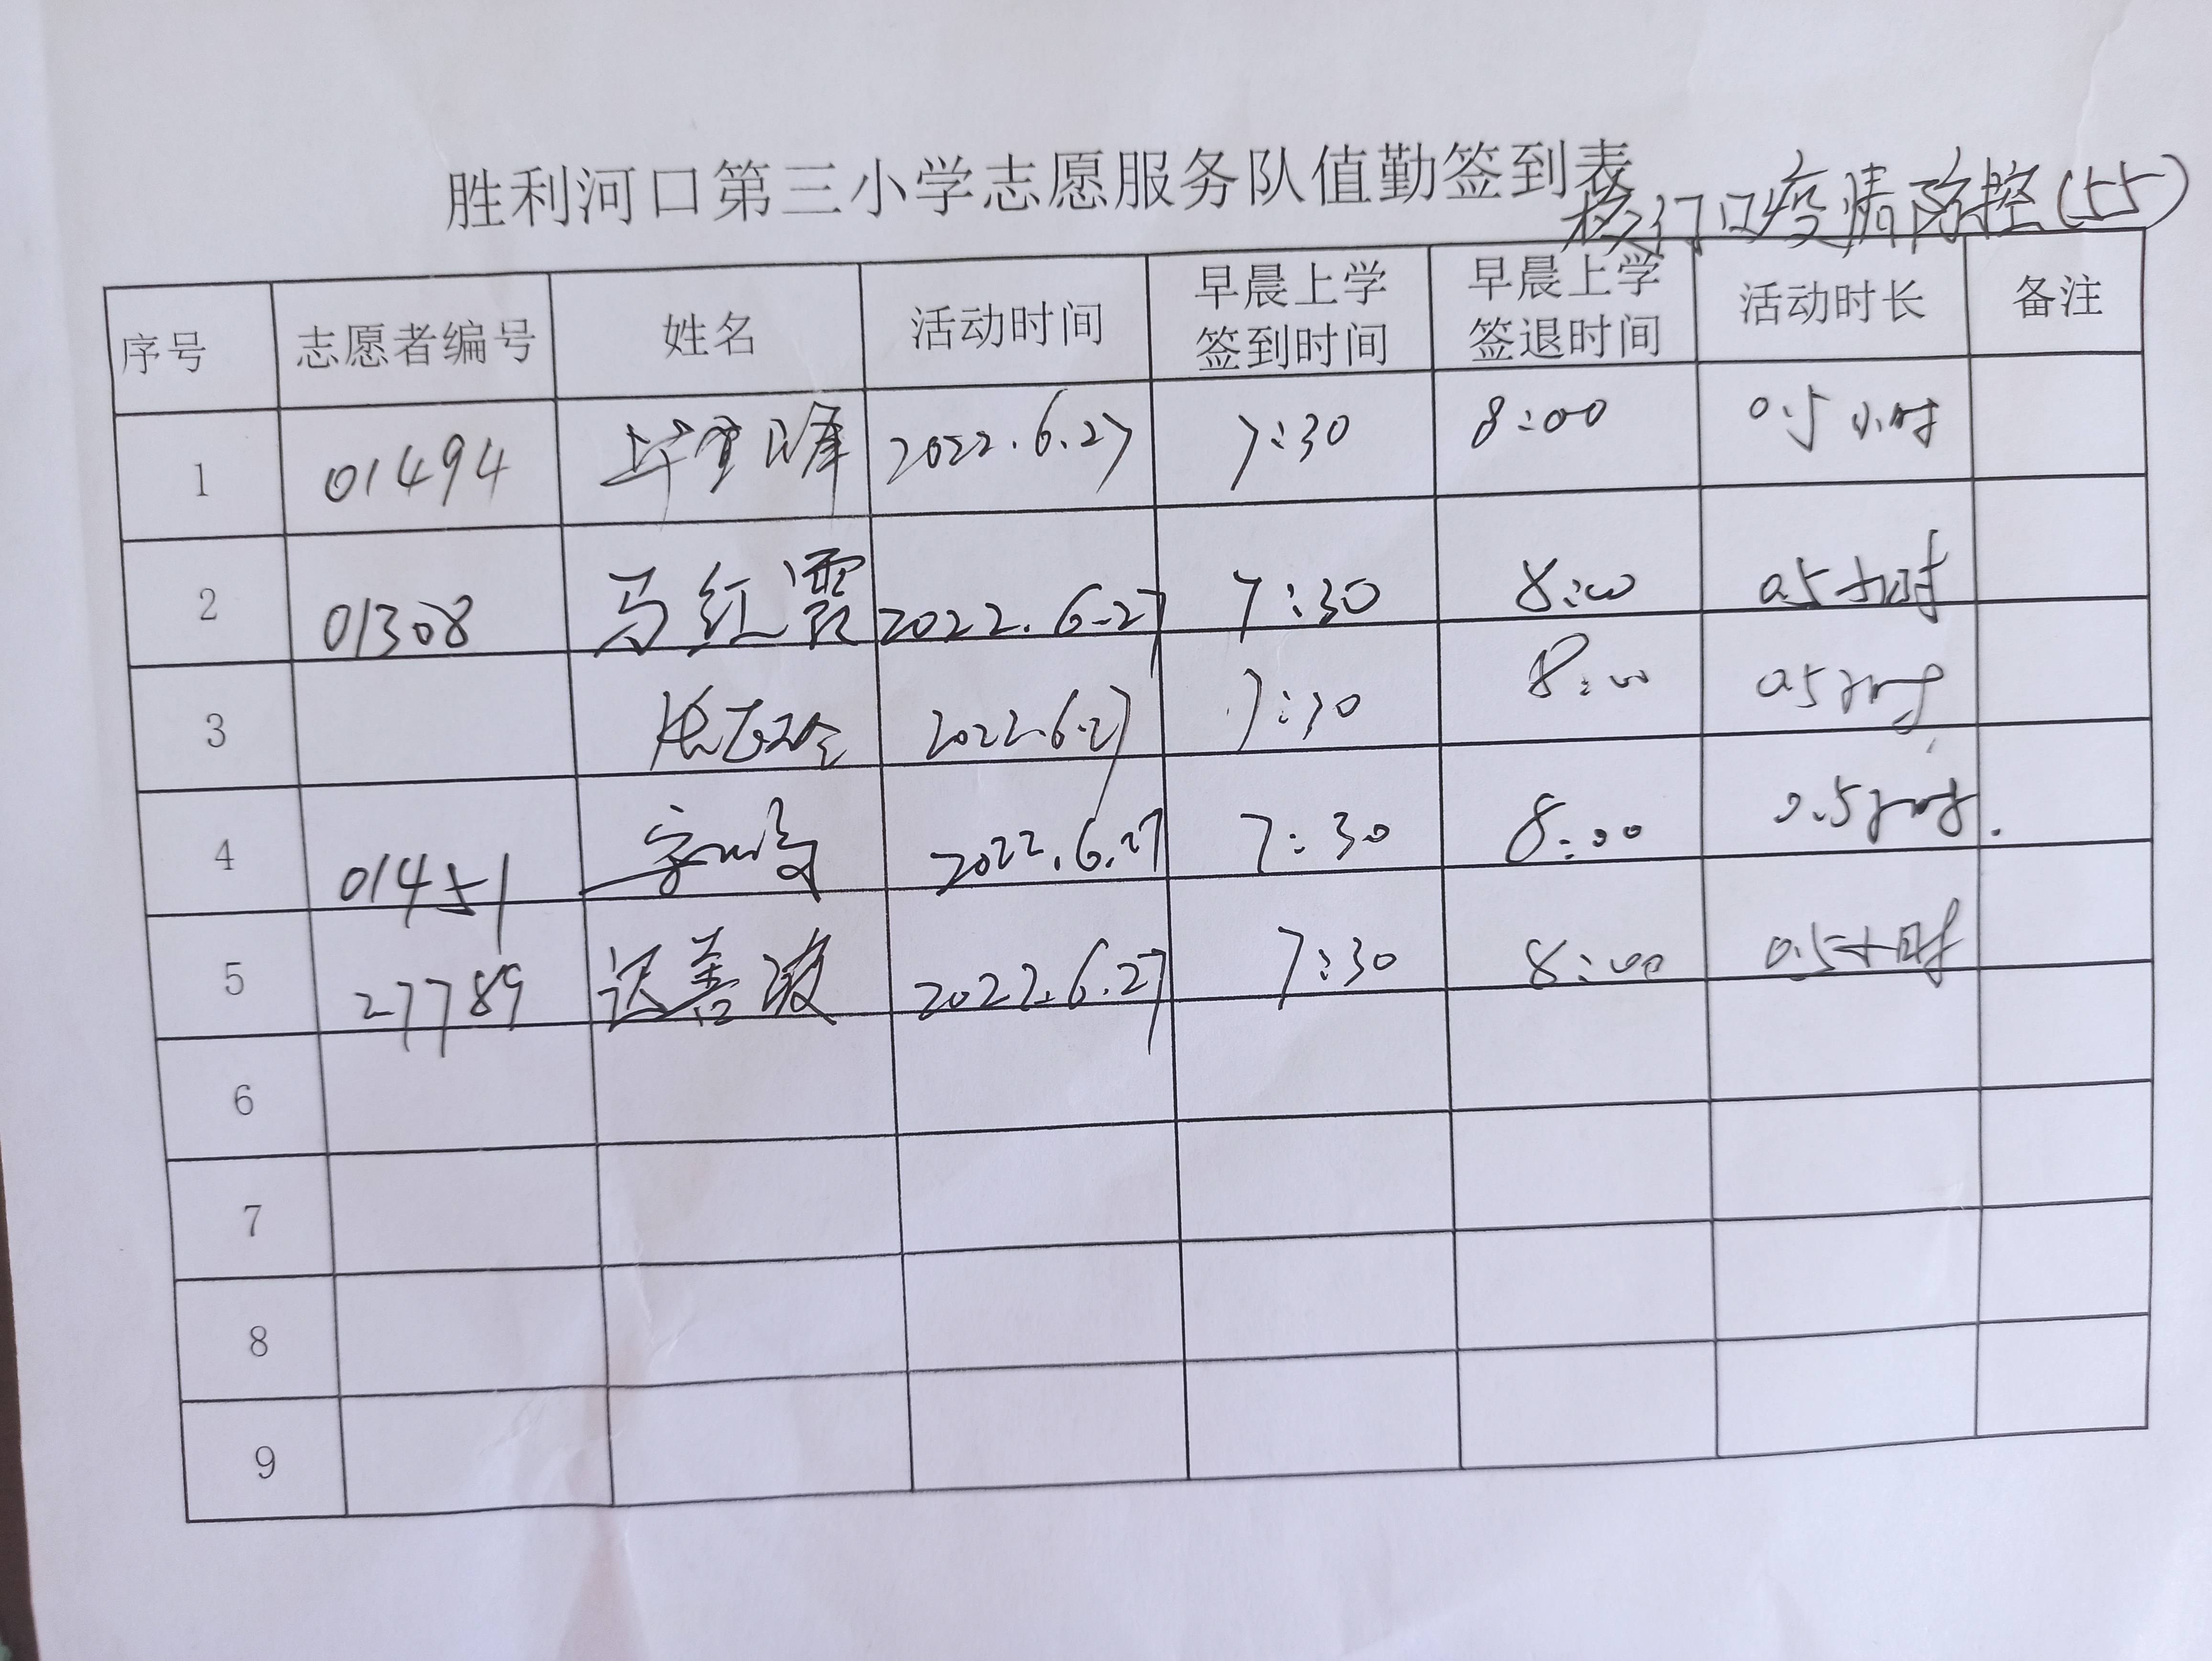 胜利河口第三小学志愿服务队值勤签到表
校门口疫情防控(55)
序号 志愿者编号 姓名 活动时间 早晨上学签到时间 早晨上学签退时间 活动时长 备注
1 01494 2022.6.27 7:30 8:00 0.5小时
2 01308 马红霞 2022.6.27 7:30 8:00 0.5小时
3 2022.6.27 7:30 8:00 0.5小时
4 01451 2022.6.27 7:30 8:00 0.5小时.
5 27789 2022.6.27 7:30 8:00 0.5小时
6
7
8
9